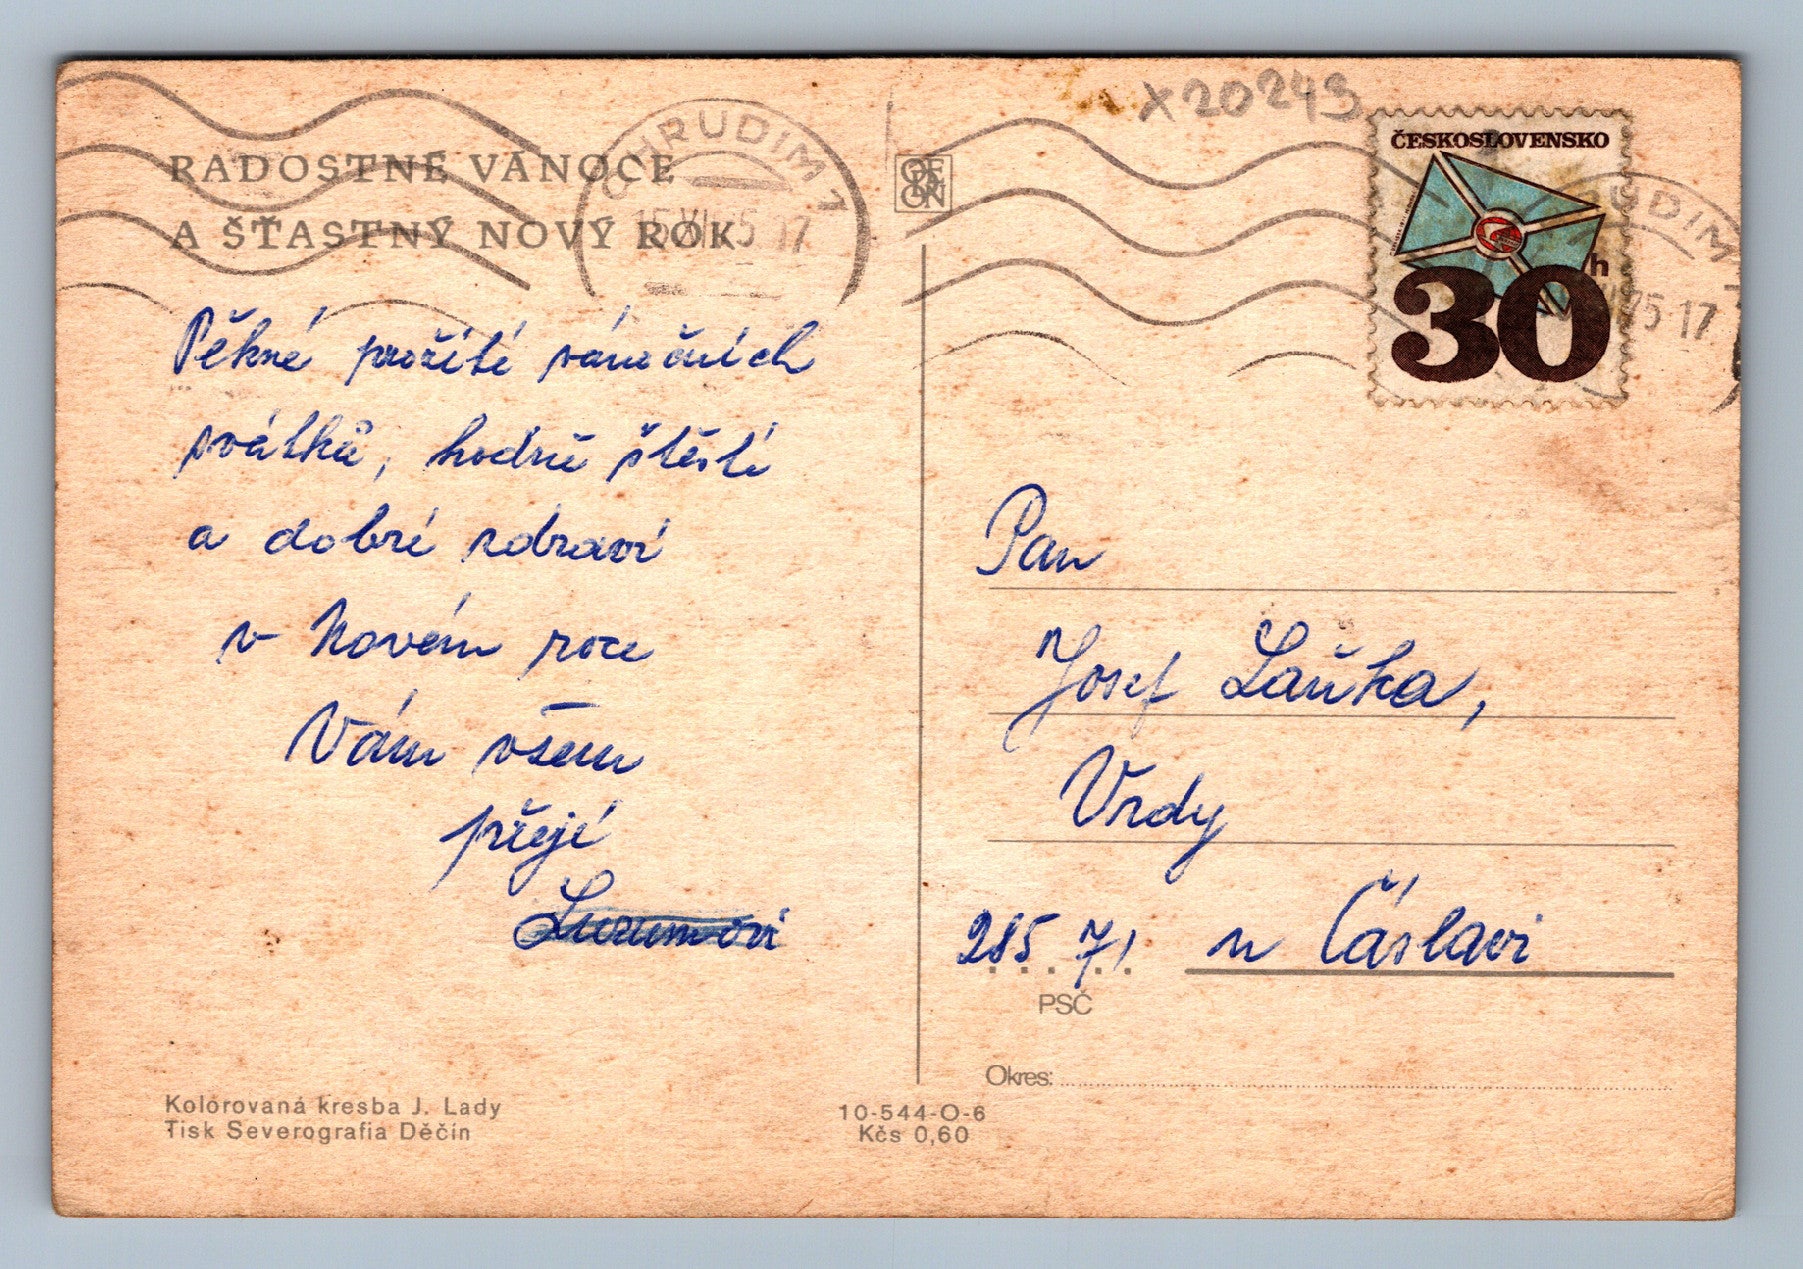 x20243
CHRUDIM 1
75 17
RADOSTNÉ VÁNOCE
A ŠŤASTNÝ NOVÝ ROK
ODEON
ČESKOSLOVENSKO
30 h
RUDIM 1
75-17
Pěkné prožití vánočních
svátků, hodně štěstí
a dobré zdraví
v Novém roce
Vám všem
přejí
Pan
Josef Laňka,
Vrdy
285 71 u Čáslavi
PSČ
Okres:
Kolorovaná kresba J. Lady
Tisk Severografia Děčín
10-544-O-6
Kčs 0,60